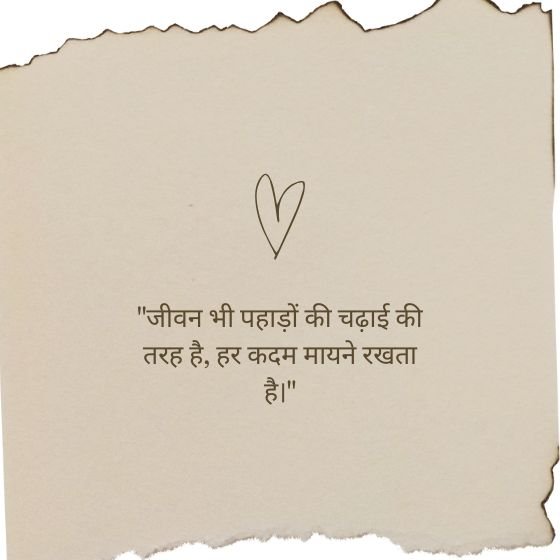 "जीवन भी पहाड़ों की चढ़ाई की
तरह है, हर कदम मायने रखता
है।"